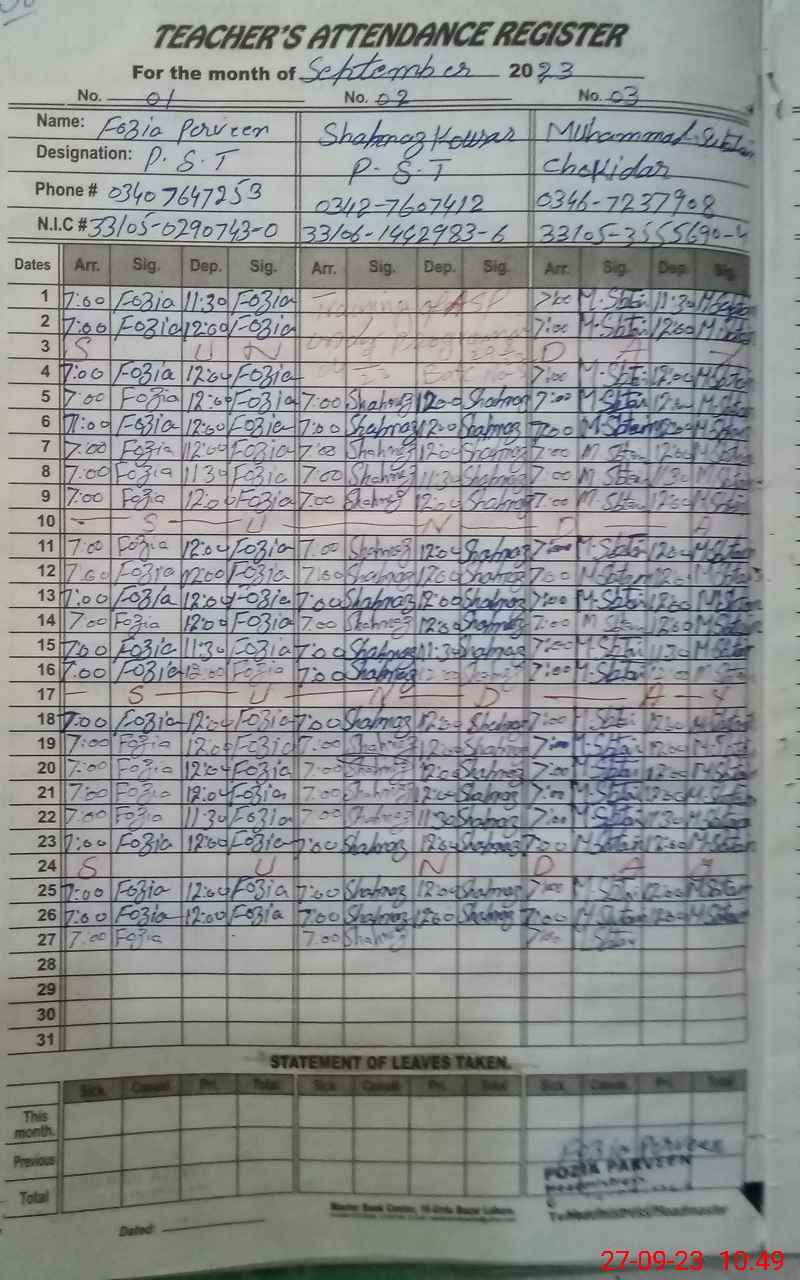 TEACHER'S ATTENDANCE REGISTER
For the month of September 2023
No. 01 No. 02 No. 03
Name: Fozia Perveen Shahnaz Kousar Muhammad Sibtain
Designation: P.S.T P.S.T Chokidar
Phone # 0340 7647253 0342-7607412 0346-7237908
N.I.C # 33105-0290743-0 33106-1442983-6 33105-3555690-
Dates Arr. Sig. Dep. Sig. Arr. Sig. Dep. Sig. Arr. Sig. Dep. Sig.
1 7:00 Fozia 11:30 Fozia Training of ASP 7:00 M.Sbtain 11:30 M.Sbtain
2 7:00 Fozia 12:00 Fozia 7:00 M.Sbtain 12:00 M.Sbtain
3 S U N D A Y
4 7:00 Fozia 12:00 Fozia 7:00 M.Sbtain 12:00 M.Sbtain
5 7:00 Fozia 12:00 Fozia 7:00 Shahnaz 12:00 Shahnaz 7:00 M.Sbtain 12:00 M.Sbtain
6 7:00 Fozia 12:00 Fozia 7:00 Shahnaz 12:00 Shahnaz 7:00 M.Sbtain 12:00 M.Sbtain
7 7:00 Fozia 12:00 Fozia 7:00 Shahnaz 12:00 Shahnaz 7:00 M.Sbtain 12:00 M.Sbtain
8 7:00 Fozia 11:30 Fozia 7:00 Shahnaz 11:30 Shahnaz 7:00 M.Sbtain 11:30 M.Sbtain
9 7:00 Fozia 12:00 Fozia 7:00 Shahnaz 12:00 Shahnaz 7:00 M.Sbtain 12:00 M.Sbtain
10 S U N D A
11 7:00 Fozia 12:00 Fozia 7:00 Shahnaz 12:00 Shahnaz 7:00 M.Sbtain 12:00 M.Sbtain
12 7:00 Fozia 12:00 Fozia 7:00 Shahnaz 12:00 Shahnaz 7:00 M.Sbtain 12:00 M.Sbtain
13 7:00 Fozia 12:00 Fozia 7:00 Shahnaz 12:00 Shahnaz 7:00 M.Sbtain 12:00 M.Sbtain
14 7:00 Fozia 12:00 Fozia 7:00 Shahnaz 12:00 Shahnaz 7:00 M.Sbtain 12:00 M.Sbtain
15 7:00 Fozia 11:30 Fozia 7:00 Shahnaz 11:30 Shahnaz 7:00 M.Sbtain 11:30 M.Sbtain
16 7:00 Fozia 12:00 Fozia 7:00 Shahnaz 12:00 Shahnaz 7:00 M.Sbtain 12:00 M.Sbtain
17 S U N D A Y
18 7:00 Fozia 12:00 Fozia 7:00 Shahnaz 12:00 Shahnaz 7:00 M.Sbtain 12:00 M.Sbtain
19 7:00 Fozia 12:00 Fozia 7:00 Shahnaz 12:00 Shahnaz 7:00 M.Sbtain 12:00 M.Sbtain
20 7:00 Fozia 12:00 Fozia 7:00 Shahnaz 12:00 Shahnaz 7:00 M.Sbtain 12:00 M.Sbtain
21 7:00 Fozia 12:00 Fozia 7:00 Shahnaz 12:00 Shahnaz 7:00 M.Sbtain 12:00 M.Sbtain
22 7:00 Fozia 11:30 Fozia 7:00 Shahnaz 11:30 Shahnaz 7:00 M.Sbtain 11:30 M.Sbtain
23 7:00 Fozia 12:00 Fozia 7:00 Shahnaz 12:00 Shahnaz 7:00 M.Sbtain 12:00 M.Sbtain
24 S U N D A Y
25 7:00 Fozia 12:00 Fozia 7:00 Shahnaz 12:00 Shahnaz 7:00 M.Sbtain 12:00 M.Sbtain
26 7:00 Fozia 12:00 Fozia 7:00 Shahnaz 12:00 Shahnaz 7:00 M.Sbtain 12:00 M.Sbtain
27 7:00 Fozia 7:00 Shahnaz 7:00 Sbtain
28
29
30
31
STATEMENT OF LEAVES TAKEN.
Sick. Casual. Pri. Total Sick. Casual. Pri. Total Sick. Casual. Pri. Total
This month.
Previous
Total
Fozia Parveen
FOZIA PARVEEN
Dated:
27-09-23 10:49